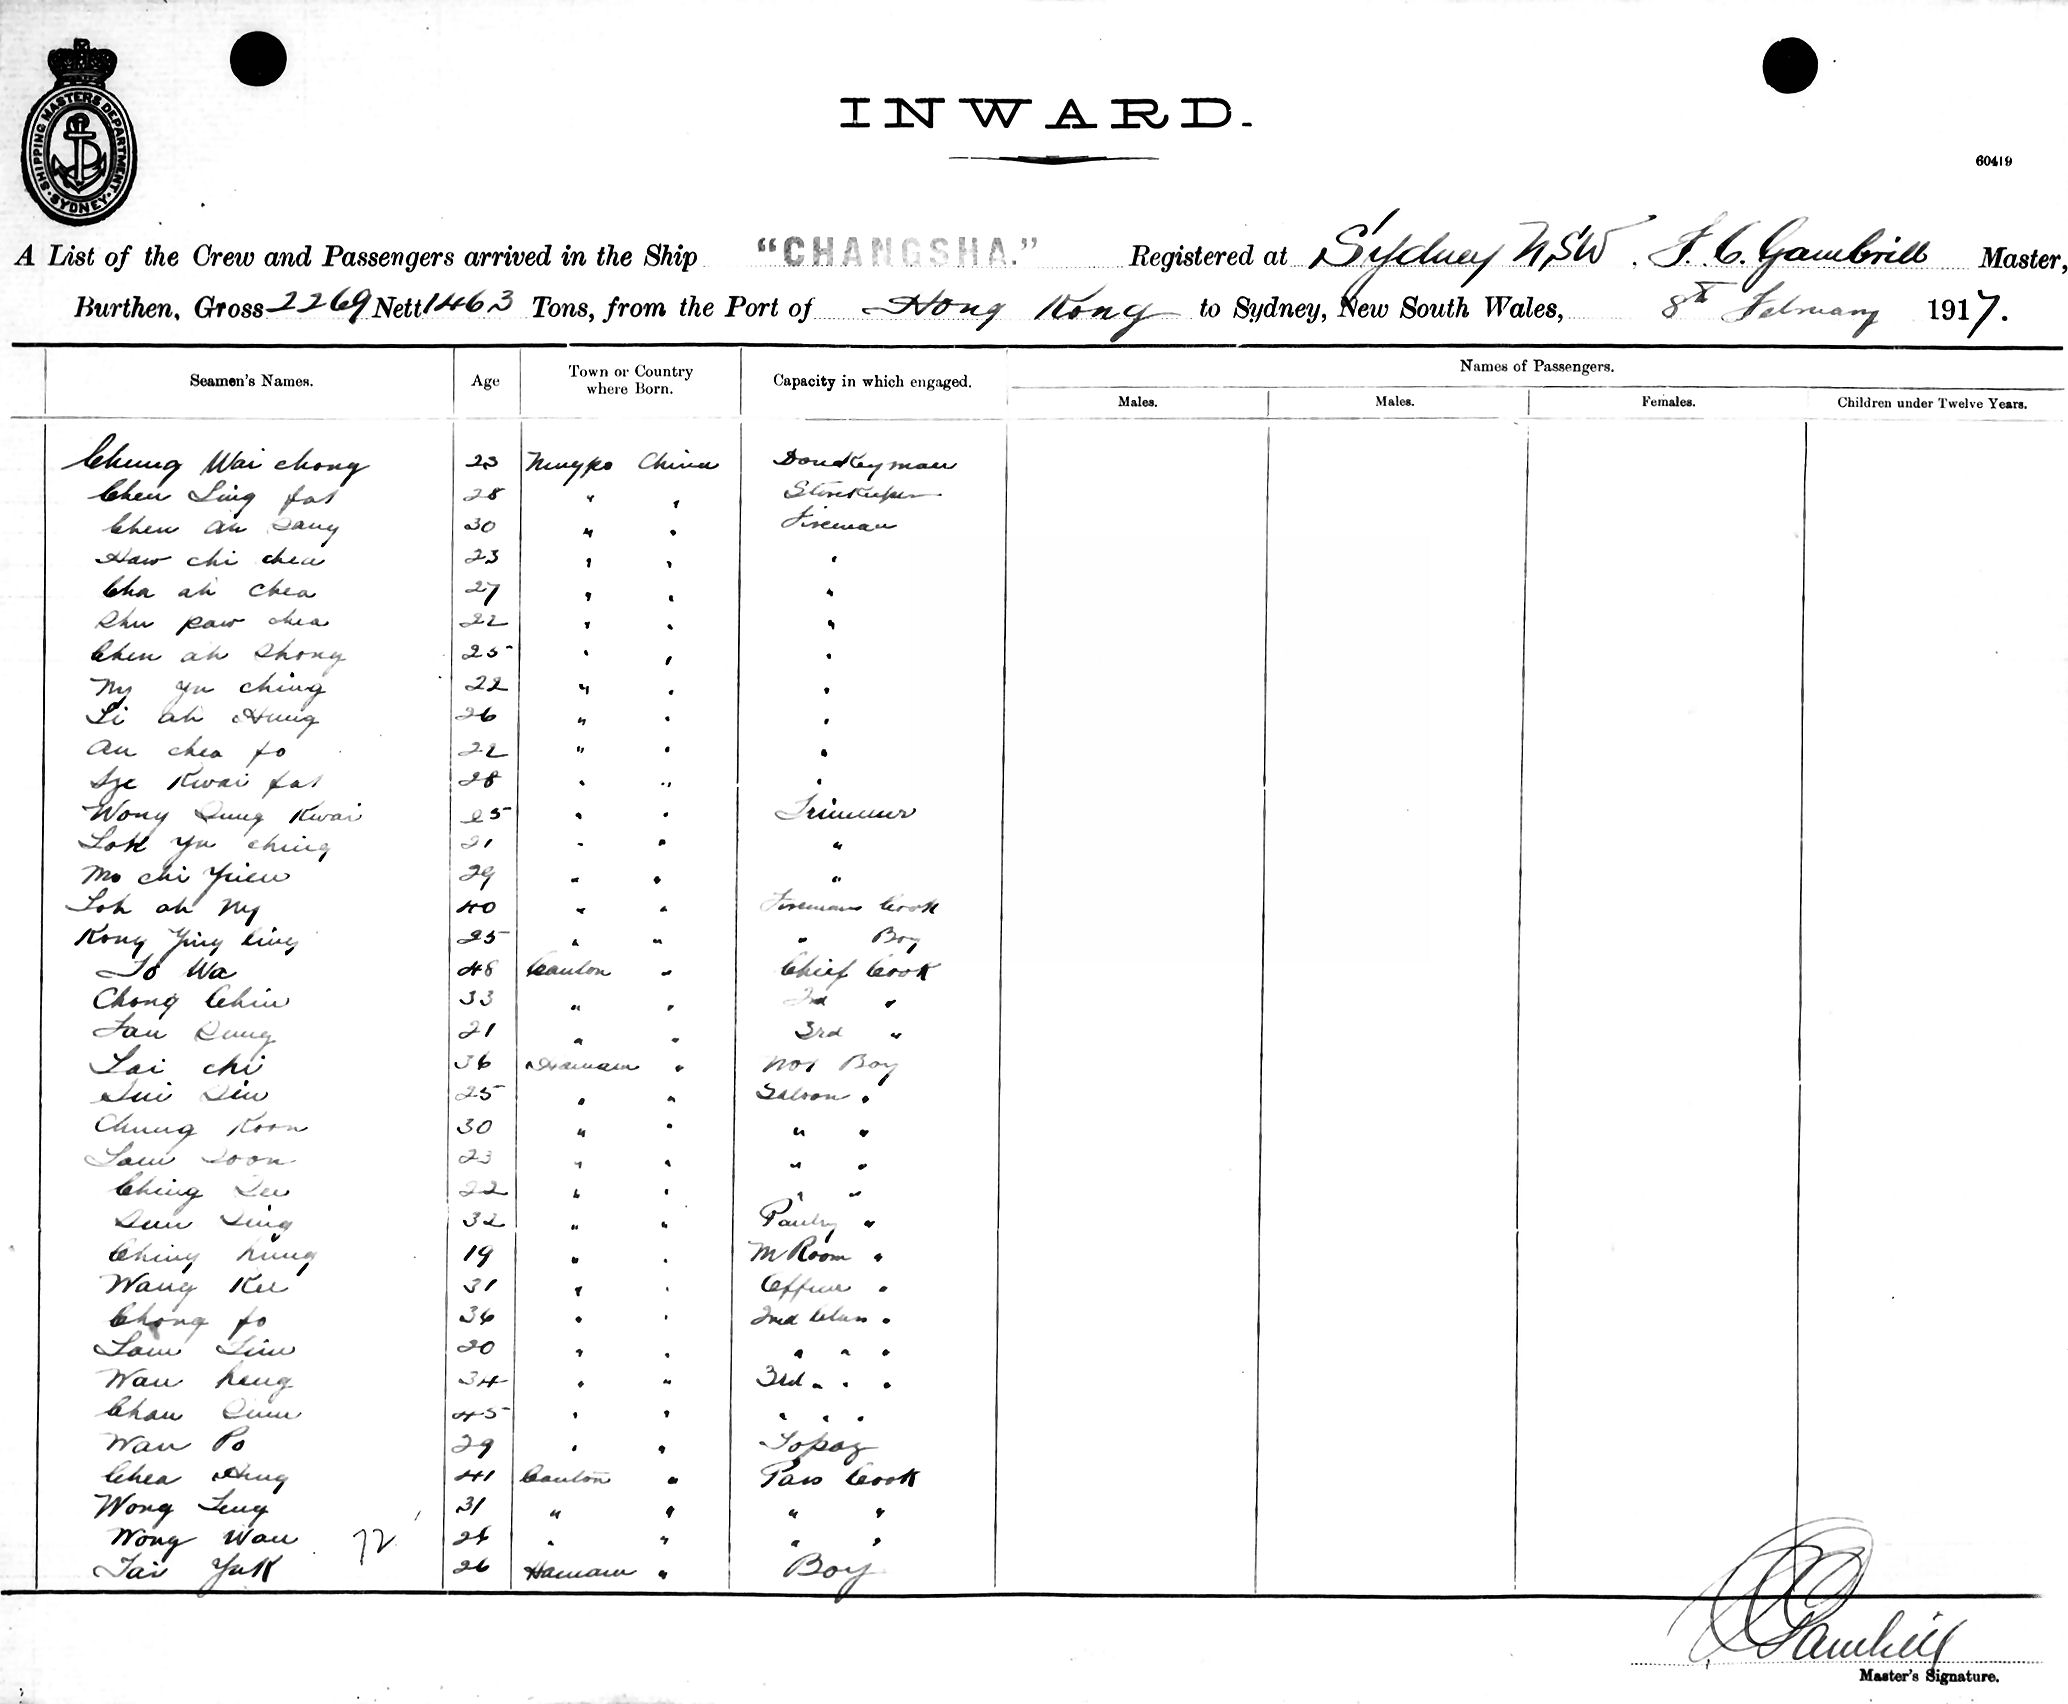 SHIPPING MASTERS DEPARTMENT
SYDNEY
INWARD.
60419
A List of the Crew and Passengers arrived in the Ship "CHANGSHA." Registered at Sydney NSW. F. C. Gambrill Master,
Burthen, Gross 2269 Nett 1463 Tons, from the Port of Hong Kong to Sydney, New South Wales, 8th February 1917.
Seamen's Names. Age Town or Country where Born. Capacity in which engaged. Names of Passengers.
Males. Males. Females. Children under Twelve Years.
Chung Wai chong 23 Ningpo China Donkeyman
Chen Ling fat 28 " " Storekeeper
Chen ah Sang 30 " " Fireman
Haw chi chea 23 " " "
Cha ah chea 27 " " "
Shu paw chea 22 " " "
Chen ah Shong 25 " " "
Ny yu ching 22 " " "
Li ah Hung 26 " " "
au chea fo 22 " " "
Sze Kwai fat 28 " " "
Wong Sung Kwai 25 " " Trimmer
Lok yu ching 21 " " "
Mo chi Yuen 29 " " "
Loh ah Ny 40 " " Firemans Cook
Kong Ying ling 25 " " " Boy
To Wa 48 Canton " Chief Cook
Chong Chin 33 " " 2nd "
Fan Sung 21 " " 3rd "
Lai chi 36 Hainam " No1 Boy
Sui Sin 25 " " Saloon "
Chung Koon 30 " " " "
Lam Soon 23 " " " "
Ching See 22 " " " "
Sun Sing 32 " " Pantry "
Ching hung 19 " " M Room "
Wang Kee 31 " " Officer "
Chong fo 36 " " 2nd Class "
Lam Lim 20 " " " " "
Wan heng 34 " " 3rd " " "
Chan Sum 45 " " " " "
Wan Po 29 " " Topaz
Chea Hung 41 Canton " Pass Cook
Wong Leng 31 " " " "
Wong Wan 72 26 " " " "
Tai Yuk 26 Hainam " Boy
Gambrill
Master's Signature.